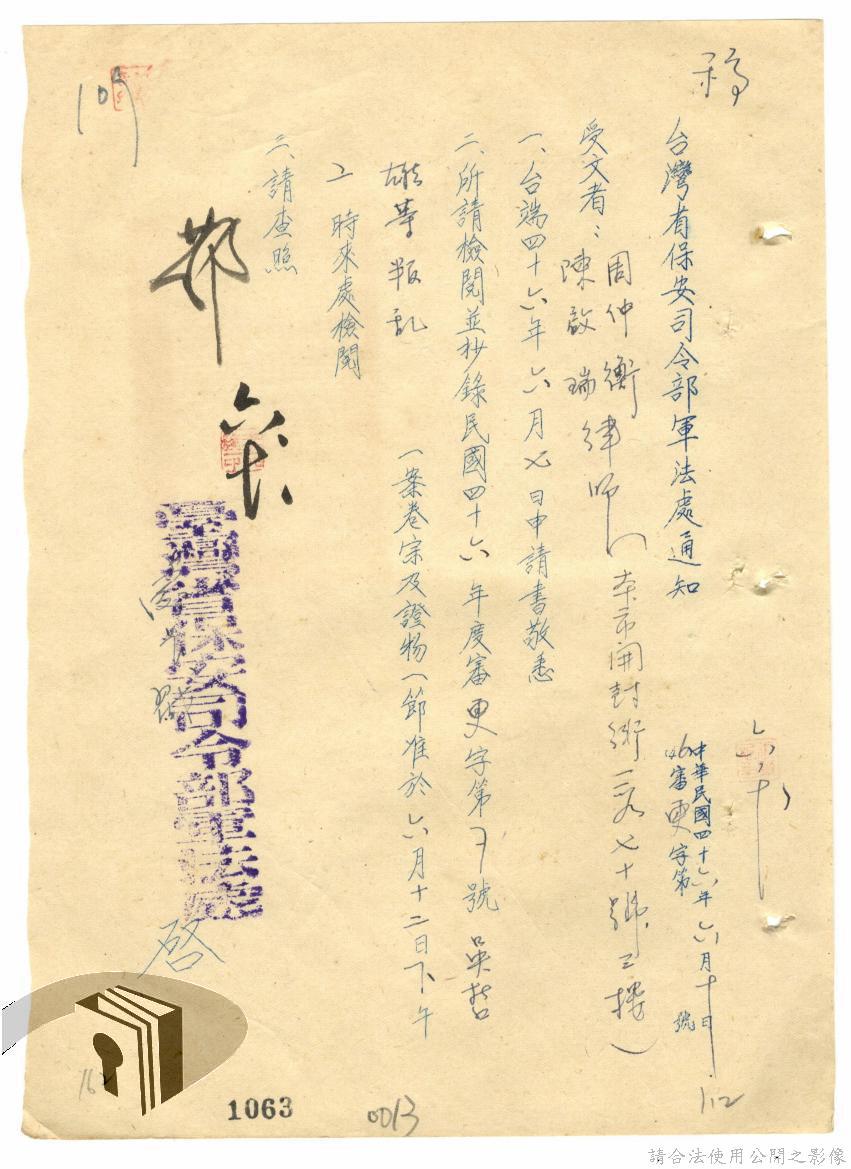 稿
台灣省保安司令部軍法處通知
中華民國四十六年六月十日
(46)審更字第 號
受文者：周仲衡律師(本市開封街一段七十號三樓)
陳啟瑞
一、台端四十六年六月七日申請書敬悉
二、所請檢閱並抄錄民國四十六年度審更字第 號吳哲
雄等叛乱 一案卷宗及證物一節准於六月十二日下午
二時來處檢閱
三、請查照
六、十
臺灣省保安司令部軍法處
啓
109
112
162
1063
0013
請合法使用公開之影像